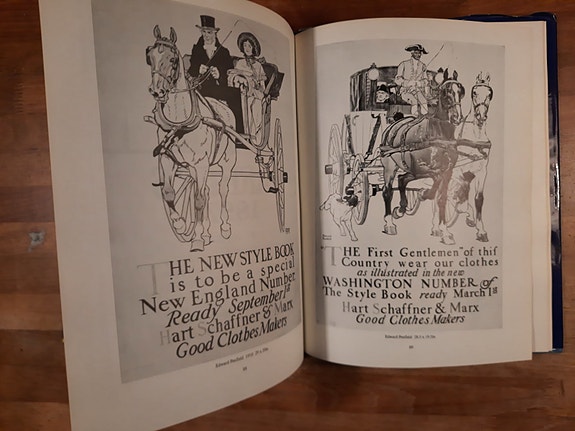 THE NEW STYLE BOOK
is to be a special
New England Number
Ready September 1st
Hart Schaffner & Marx
Good Clothes Makers
"THE First Gentlemen" of thif
Country wear our clothes
as illustrated in the new
WASHINGTON NUMBER of
The Style Book ready March 1st
Hart Schaffner & Marx
Good Clothes Makers